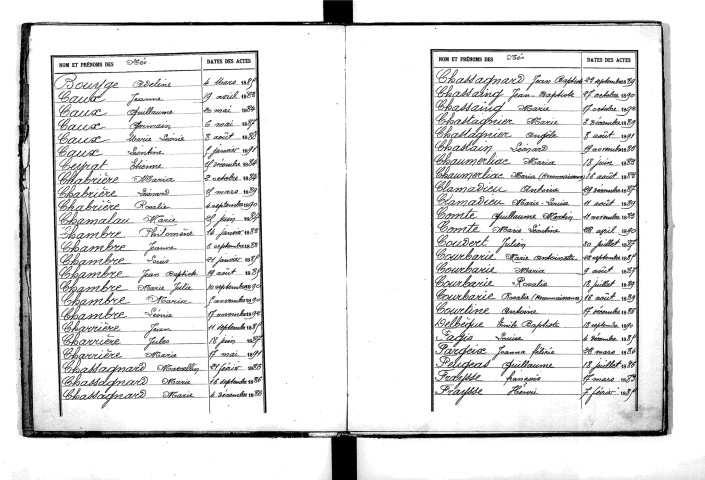 NOM ET PRÉNOMS DES Nés. DATES DES ACTES
Bouyge Adeline 4 Mars 188
Caux Jeanne 19 avril 1888
Caux Guillaume 20 mai 1884
Caux Germain 6 mai 1887
Caux Marie Léonie 8 août 188
Caux Léontine janvier 1891
Ceyrat Etienne décembre 1884
Chabrière Maria 2 octobre 1884
Chabrière Léonard mars 1889
Chabrière Rosalie 4 septembre 1890
Chamalau Marie juin 188
Chambre Philomène 14 janvier 188
Chambre Jeanne 6 septembre 188
Chambre Louis 21 janvier 188
Chambre Jean Baptiste 19 août 188
Chambre Marie Julie 10 septembre 1890
Chambre Maria novembre 1890
Chambre Léonie 17 novembre 189
Charrière Jean 11 septembre 188
Charrière Jules 18 juin 188
Charrière Marie 17 mai 1891
Chassagnard Marcellin 21 février 188
Chassagnard Marie 16 septembre 1886
Chassagnard Marie 4 décembre 188
NOM ET PRÉNOMS DES Nés DATES DES ACTES
Chassagnard Jean Baptiste 22 septembre 1889
Chassaing Jean-Baptiste 27 octobre 1890
Chassaing Marie 17 octobre 189
Chastagnier Marie 3 décembre 1889
Chastagnier Angèle 8 août 1891
Chatlain Léonard 19 novembre 188
Chaumerliac Maria 18 juin 188
Chaumerliac Maria (Reconnaissance) 16 août 188
Clamadieu Antoine 29 décembre 1887
Clamadieu Marie-Louise 11 août 1889
Comte Guillaume Martin 11 novembre 188
Comte Marie Léontine 28 avril 1890
Coudert Julien 30 juillet 188
Courbarie Marie Antoinette 28 septembre 188
Courbarie Maria 9 août 188
Courbarie Rosalie 18 juillet 1889
Courbarie Rosalie (Reconnaissance) 16 août 1889
Courtine Antoine 17 décembre 188
Delbègue Emile Baptiste 18 septembre 1890
Fargis Louise 4 décembre 188
Fargeix Jeanne félicie 28 mars 1884
Feugeas Guillaume 18 juillet 1886
Fraysse françois 17 mars 188
Fraysse Henri 7 février 188